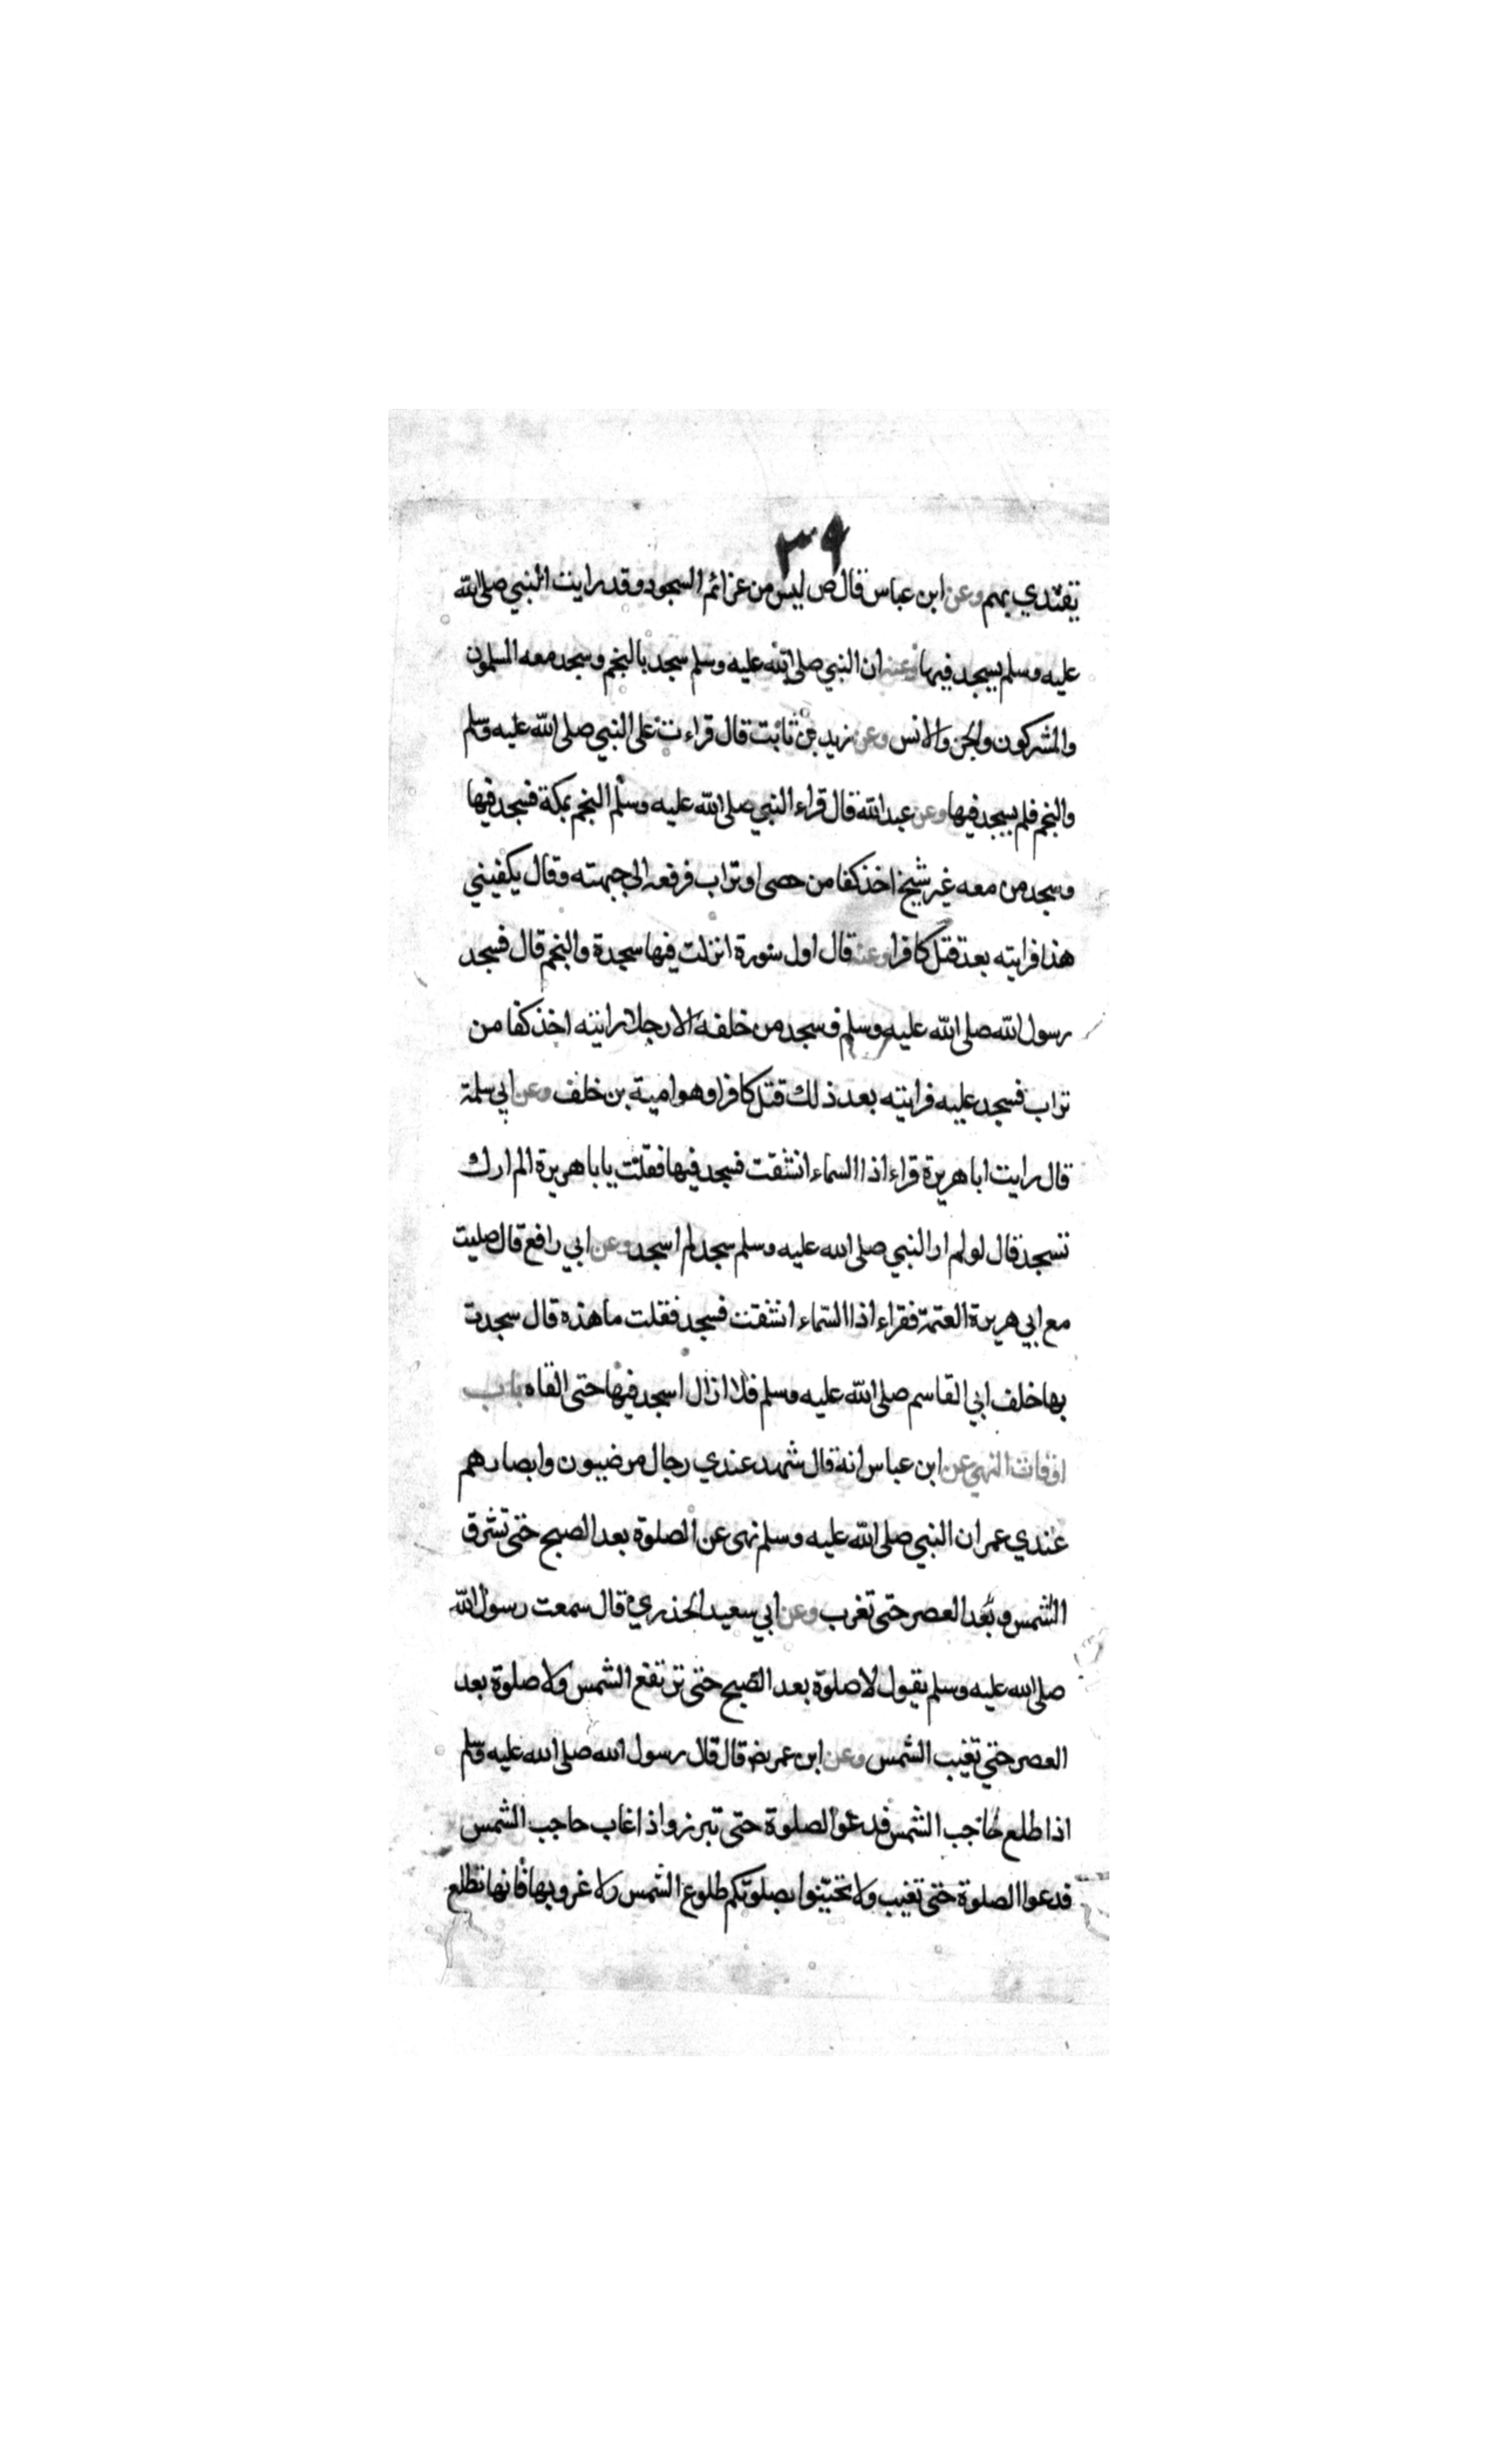 ٣٩
يقتدي بهم وعن ابن عباس قال ص ليس من عزائم السجود وقد رايت النبي صلى الله
عليه وسلم يسجد فيها وعنه ان النبي صلى الله عليه وسلم سجد بالنجم وسجد معه المسلمون
والمشركون والجن والانس وعن زيد بن ثابت قال قراءت على النبي صلى الله عليه وسلم
والنجم فلم يسجد فيها وعن عبد الله قال قراء النبي صلى الله عليه وسلم النجم بمكة فسجد فيها
وسجد من معه غير شيخ اخذ كفا من حصى او تراب فرفعه الى جبهته وقال يكفيني
هذا فرايته بعد قتل كافرا وعنه قال اول سورة انزلت فيها سجدة والنجم قال فسجد
رسول الله صلى الله عليه وسلم وسجد من خلفه الا رجلا رايته اخذ كفا من
تراب فسجد عليه فرايته بعد ذلك قتل كافرا وهو امية بن خلف وعن ابي سلمة
قال رايت ابا هريرة قراء اذا السماء انشقت فسجد فيها فقلت يابا هريرة الم ارك
تسجد قال لو لم ار النبي صلى الله عليه وسلم سجد لم اسجد وعن ابي رافع قال صليت
مع ابي هريرة العتمة فقراء اذا السماء انشقت فسجد فقلت ما هذه قال سجدت
بها خلف ابي القاسم صلى الله عليه وسلم فلا ازال اسجد فيها حتى القاه باب
اوقات النهي عن ابن عباس انه قال شهد عندي رجال مرضيون وابصارهم
عندي عمر ان النبي صلى الله عليه وسلم نهى عن الصلوة بعد الصبح حتى تشرق
الشمس وبعد العصر حتى تغرب وعن ابي سعيد الخذري قال سمعت رسول الله
صلى الله عليه وسلم يقول لا صلوة بعد الصبح حتى ترتفع الشمس ولا صلوة بعد
العصر حتي تغيب الشمس وعن ابن عمر رض قال قال رسول الله صلى الله عليه وسلم
اذا طلع حاجب الشمس فدعوا الصلوة حتى تبرز واذا غاب حاجب الشمس
فدعوا الصلوة حتى تغيب ولا تحينوا بصلوتكم طلوع الشمس ولا غروبها فانها تطلع